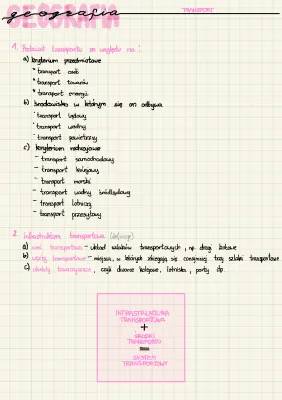 GEOGRAFIA
geografia
TRANSPORT
1. Podział transportu ze względu na:
a) kryterium przedmiotowe
* transport osób
* transport towarów
* transport energii
b) środowisko w którym się on odbywa
* transport lądowy
* transport wodny
* transport powietrzny
c) kryterium rodzajowe
- transport samochodowy
- transport kolejowy
- transport morski
- transport wodny śródlądowy
- transport lotniczy
- transport przesyłowy
2. infrastruktura transportowa (definicje)
a) sieć transportowa - układ szlaków transportowych, np. drogi kołowe
b) węzły transportowe - miejsca, w których zbiegają się conajmniej trzy szlaki transportowe
c) obiekty towarzyszące, czyli dworce kolejowe, lotniska, porty itp.
INFRASTRUKTURA
TRANSPORTOWA
+
ŚRODKI
TRANSPORTU
=
SYSTEM
TRANSPORTOWY